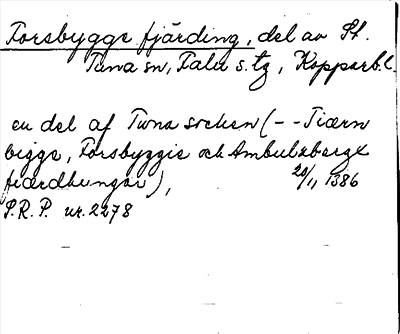 Forsbygge fjärding, del av St.
Tuna sn, Falu s. tg, Kopparb.l.
en del af Tuna socken (- - Tiærn
bigge, Forsbyggie och Ambulzbergx
fiærdhungar), 20/1, 1386
S.R.P. nr. 2278